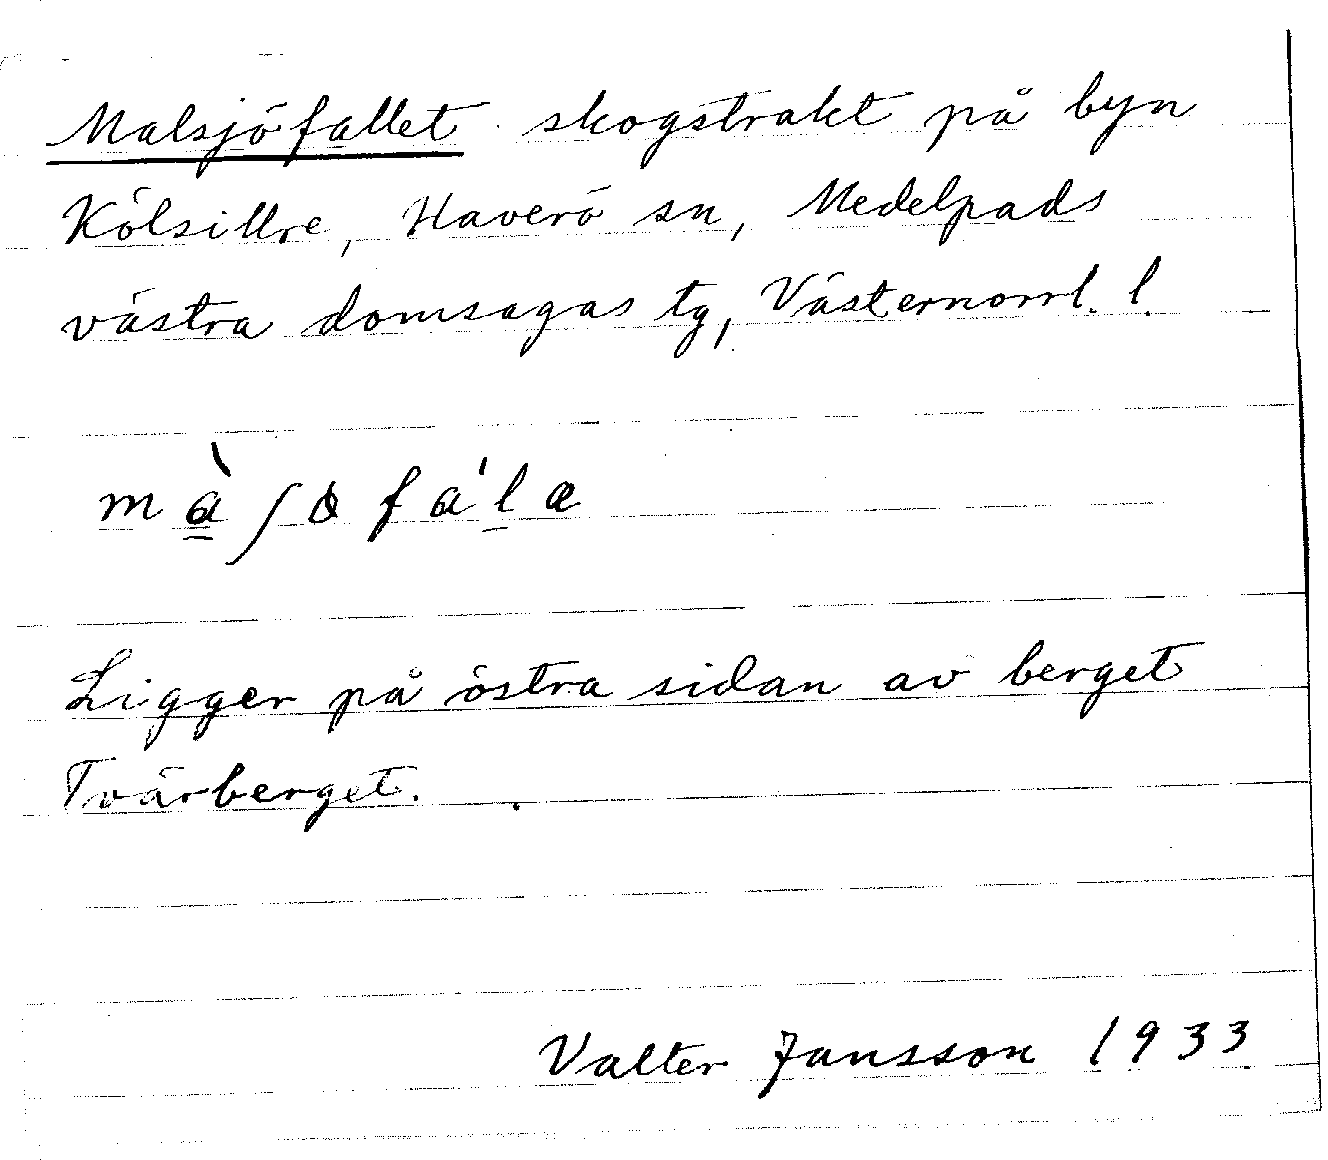 Malsjöfallet skogstrakt på byn
Kölsillre, Haverö sn, Medelpads
västra domsagas tg, Västernorrl. l.
màʃòfa'læ
Ligger på östra sidan av berget
Tvärberget.
Valter Jansson 1933